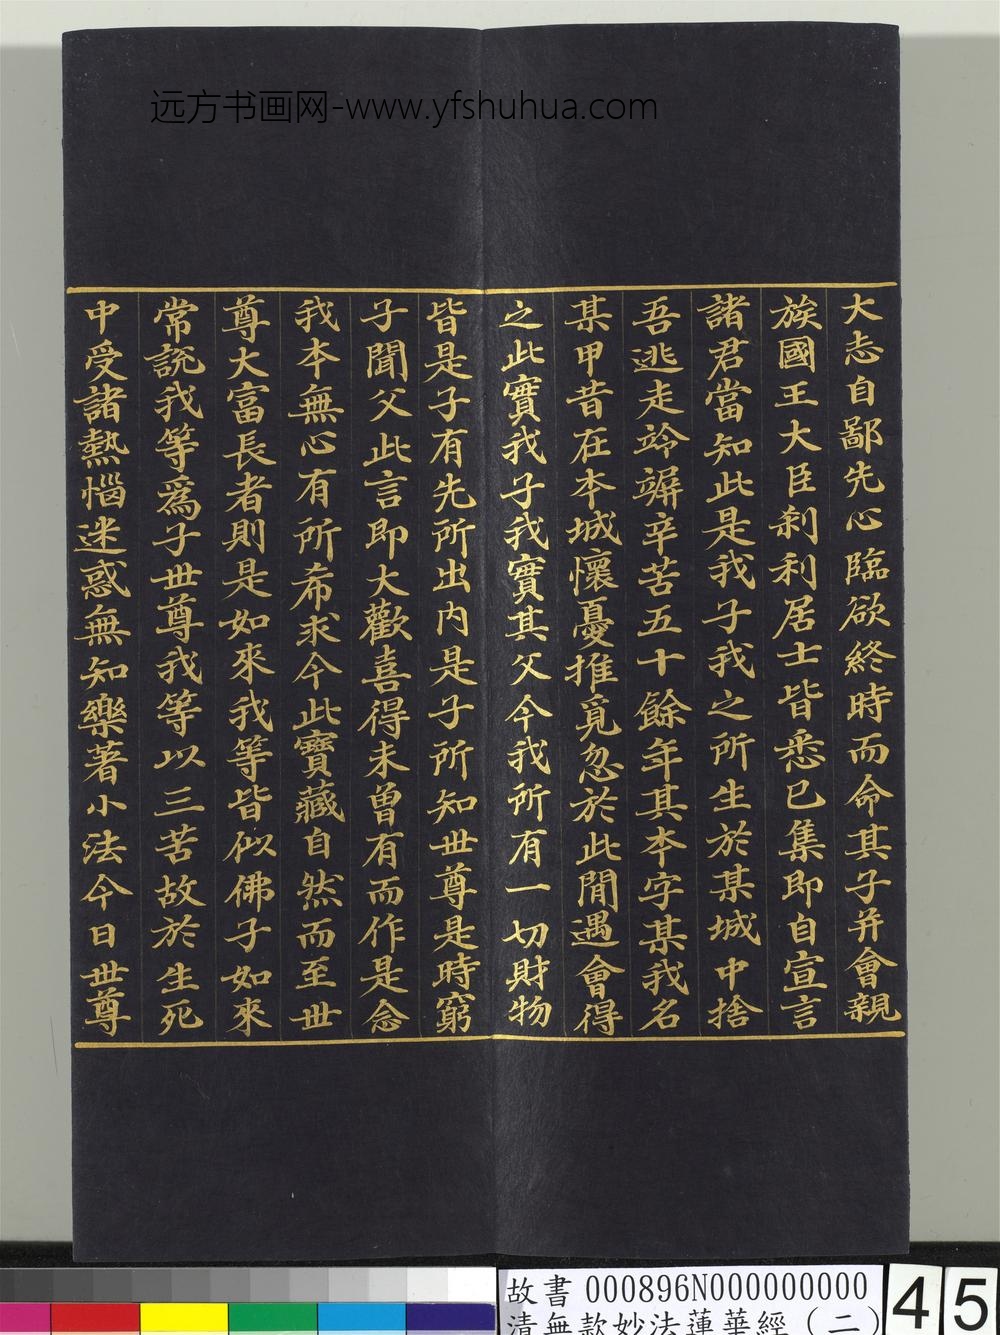 远方书画网-www.yfshuhua.com
大志自鄙先心臨欲終時而命其子并會親
族國王大臣刹利居士皆悉已集即自宣言
諸君當知此是我子我之所生於某城中捨
吾逃走竛竮辛苦五十餘年其本字某我名
某甲昔在本城懷憂推覓忽於此間遇會得
之此實我子我實其父今我所有一切財物
皆是子有先所出内是子所知世尊是時窮
子聞父此言即大歡喜得未曾有而作是念
我本無心有所希求今此寶藏自然而至世
尊大富長者則是如來我等皆似佛子如來
常説我等爲子世尊我等以三苦故於生死
中受諸熱惱迷惑無知樂著小法今日世尊
故書 000896N000000000
清無款妙法蓮華經(二)
45